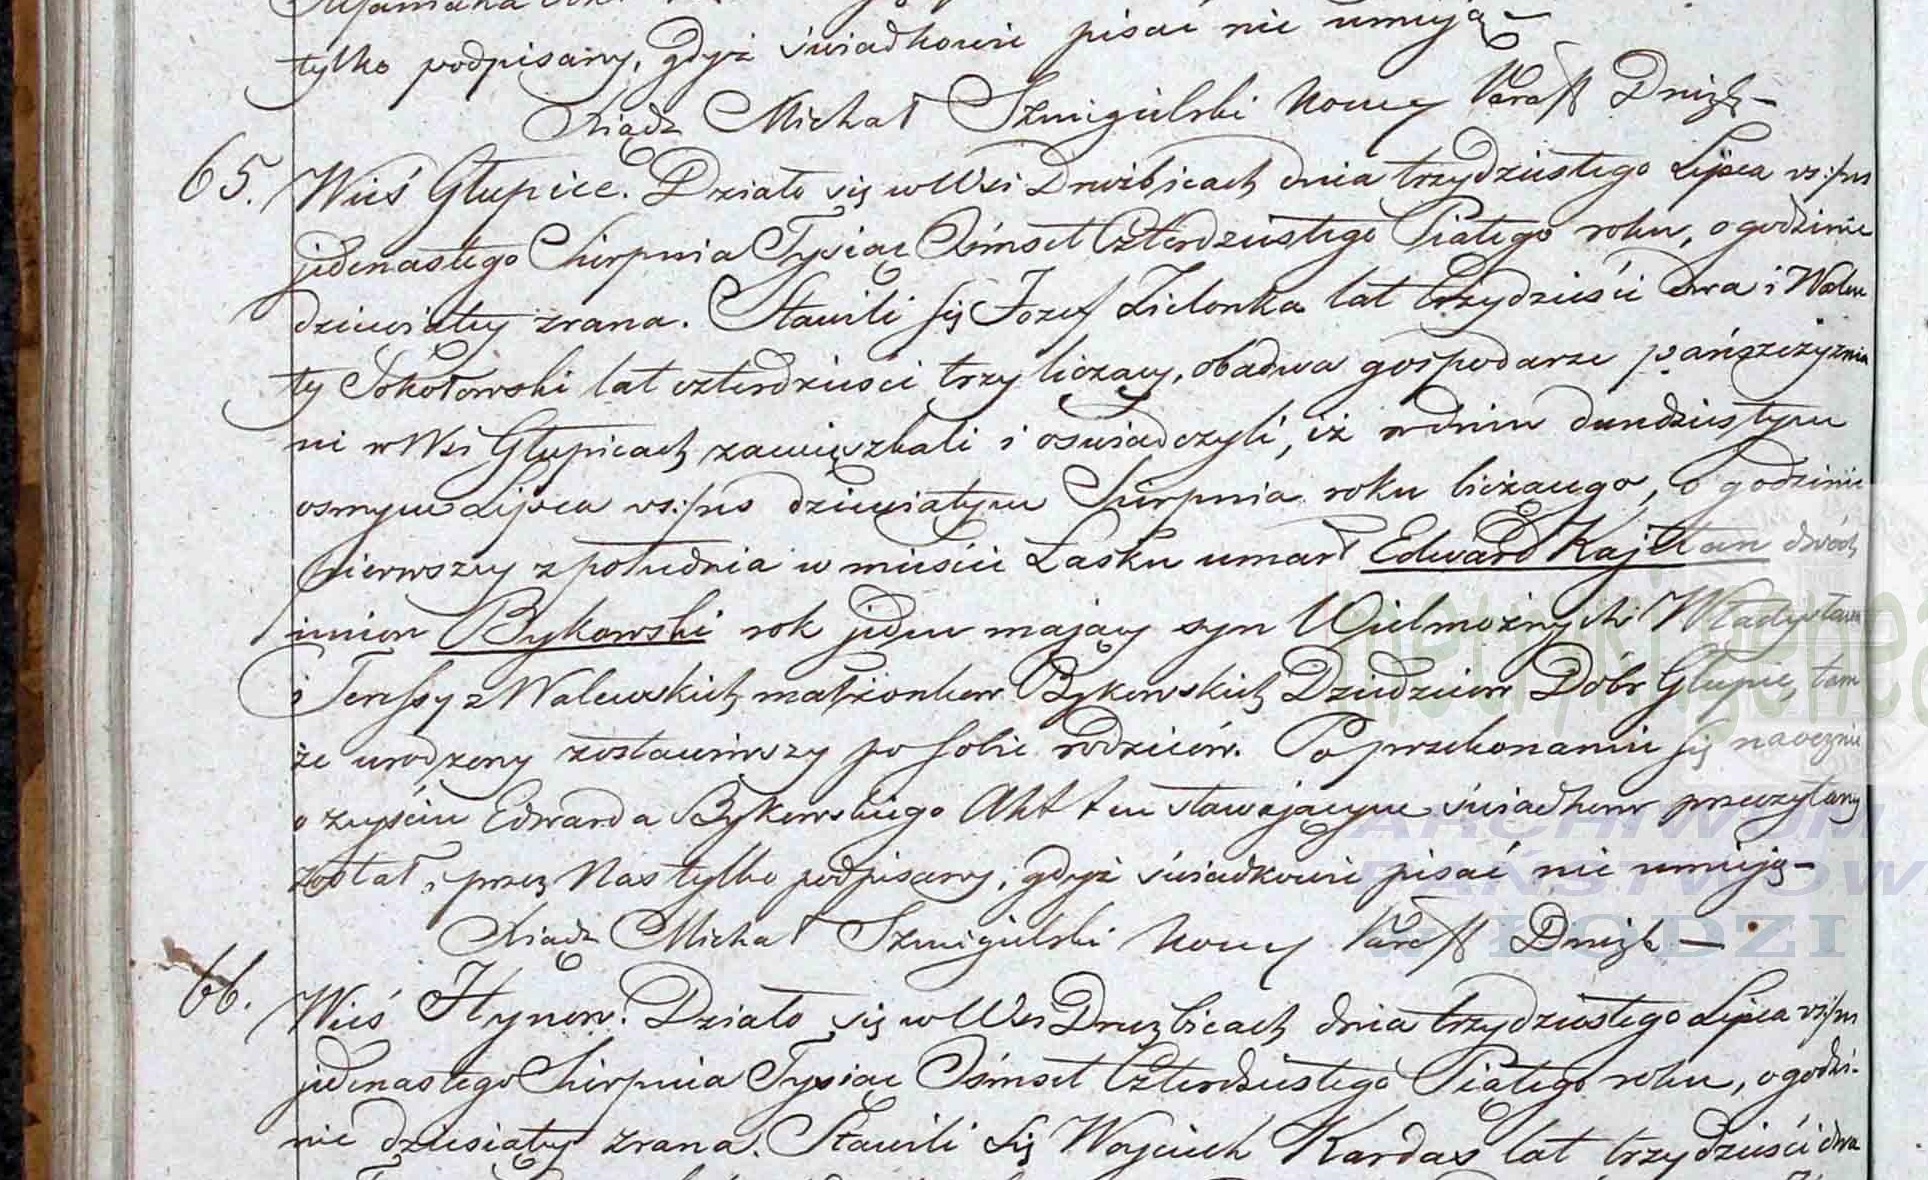 tylko podpisany, gdyż świadkowie pisać nie umieją
Xiądz Michał Szmigielski Komen Paraff Drużb
65. Wieś Głupice. Działo się w Wsi Drużbicach dnia trzydziestego Lipca vs: /nas
jedenastego Sierpnia Tysiąc Ośmset Czterdziestego Piątego roku, o godzinie
dziewiątey zrana. Stawili się Jozef Zielonka lat trzydzieści dwa i Walen
ty Sokołowski lat czterdzieści trzy liczący, obadwa gospodarze pańszczyznia
ni w Wsi Głupicach zamięszkali i oświadczyli, iż w dniu dwudziestym
osmym Lipca vs: /ns dziewiątym Sierpnia roku bieżącego, o godzinie
pierwszey z południa w mieście Lasku umarł Edward Kajetan dwóch
imion Bykowski rok jeden mający syn Wielmożnych Władysława
i Teressy z Walewskich małżonków Bykowskich Dziedziców Dóbr Głupic, tam
że urodzony zostawiwszy po sobie rodziców. Po przekonaniu się naocznie
o zeyściu Edwarda Bykowskiego Akt ten stawającym świadkom przeczytany
został, i przez Nas tylko podpisany, gdyż świadkowie pisać nie umieją
Xiądz Michał Szmigielski Komen Paraff Drużb
66. Wieś Hynow. Działo się w Wsi Drużbicach dnia trzydziestego Lipca vs: /ns
jedenastego Sierpnia Tysiąc Ośmset Czterdziestego Piątego roku, o godzi-
nie dziesiątey zrana. Stawili się Woyciech Kardas lat trzydzieści dwa
ARCHIWUM
PAŃSTWOW
W ŁODZI